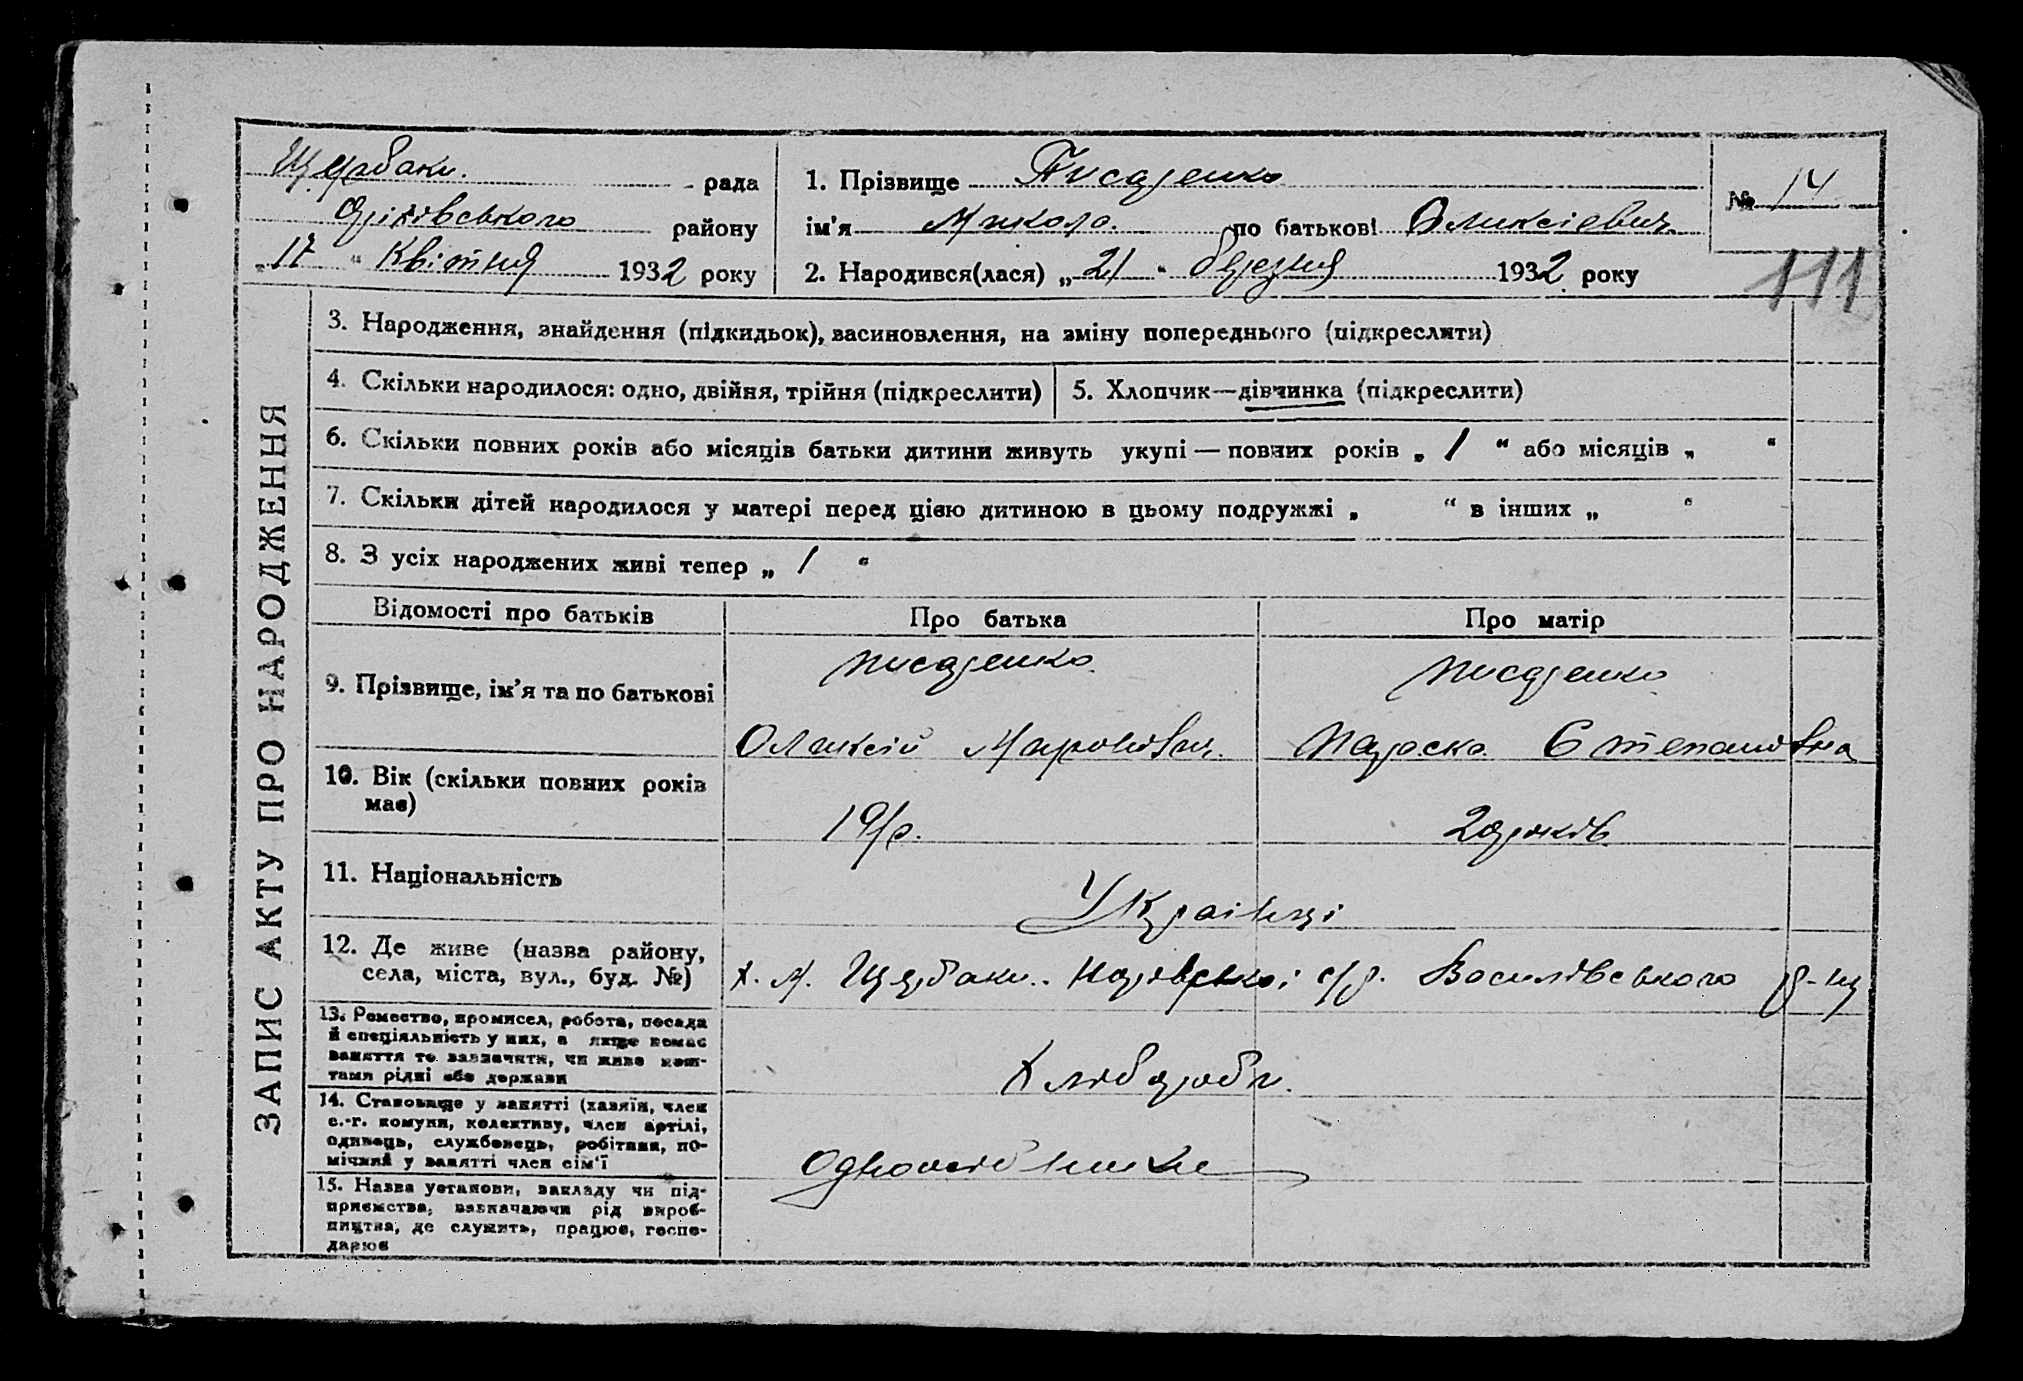 Щербаки. рада
Оріхівського району
„17“ Квітня 1932 року
1. Прізвище Писаренко
ім'я Микола. по батькові Оликсієвич
2. Народився(лася) „21“ березня 1932 року
№ 14
111
ЗАПИС АКТУ ПРО НАРОДЖЕННЯ
3. Народження, знайдення (підкидьок), васиновлення, на зміну попереднього (підкреслити)
4. Скільки народилося: одно, двійня, трійня (підкреслити)
5. Хлопчик—дівчинка (підкреслити)
6. Скільки повних років або місяців батьки дитини живуть укупі — повних років „ 1 “ або місяців „ “
7. Скільки дітей народилося у матері перед цією дитиною в цьому подружжі „ “ в інших „ “
8. З усіх народжених живі тепер „ 1 “
Відомості про батьків Про батька Про матір
9. Прізвище, ім'я та по батькові
Писаренко
Оликсій Миронович.
Писаренко
Параска Степановна
10. Вік (скільки повних років
має)
19/р.
20 років
11. Національність
Українці
12. Де живе (назва району,
села, міста, вул., буд. №)
х. М. Щербаки. с/р. Василівського р-ну
13. Ремество, промисел, робота, посада
й спеціяльність у них, а якще немає
заняття то зазначити, чи живе кош-
тами рідні або держави
Хлібороби.
14. Становище у занятті (хазяїн, член
с.-г. комуни, колективу, член артілі,
одинець, службовець, робітник, по-
мічний у занятті член сім'ї
Одноосібники
15. Назва установи, закладу чи під-
приємства, зазначаючи рід вироб-
ництва, де служить, працює, госпо-
дарює